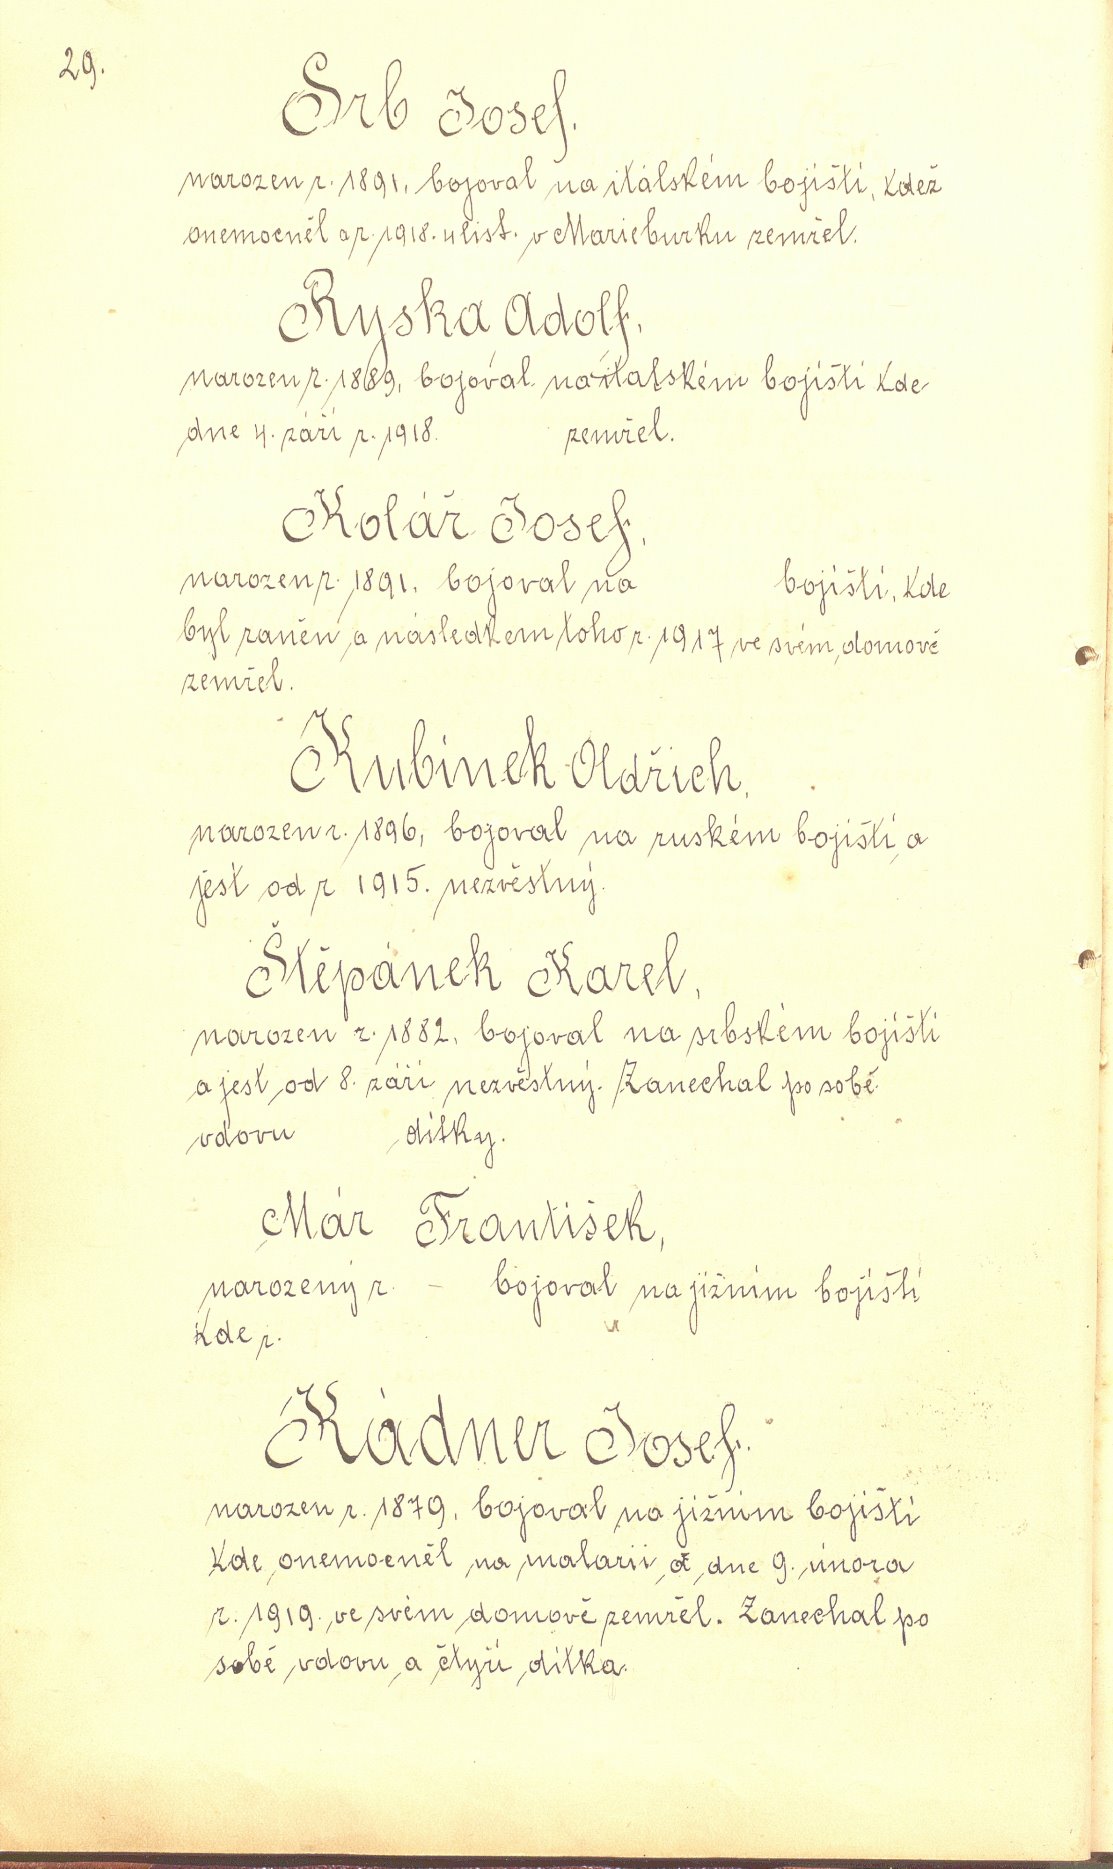 29.
Srb Josef.
narozen r. 1891, bojoval na italském bojišti, kdež
onemocněl a r. 1918. 4 list. v Marieburku zemřel.
Ryska Adolf,
narozen r. 1889, bojoval na italském bojišti kde
dne 4. září r. 1918. zemřel.
Kolář Josef,
narozen r. 1891, bojoval na bojišti, kde
byl raněn a následkem toho r. 1917 ve svém domově
zemřel.
Kubínek Oldřich,
narozen r. 1896, bojoval na ruském bojišti a
jest od r 1915. nezvěstný.
Štěpánek Karel,
narozen r. 1882, bojoval na srbském bojišti
a jest od 8. září nezvěstný. Zanechal po sobě
vdovu dítky.
Már František,
narozený r. – bojoval na jižním bojišti
kde r.
Kádner Josef.
narozen r. 1879, bojoval na jižním bojišti
kde onemocněl na malarii a dne 9. února
r. 1919. ve svém domově zemřel. Zanechal po
sobě vdovu a čtyři dítka.